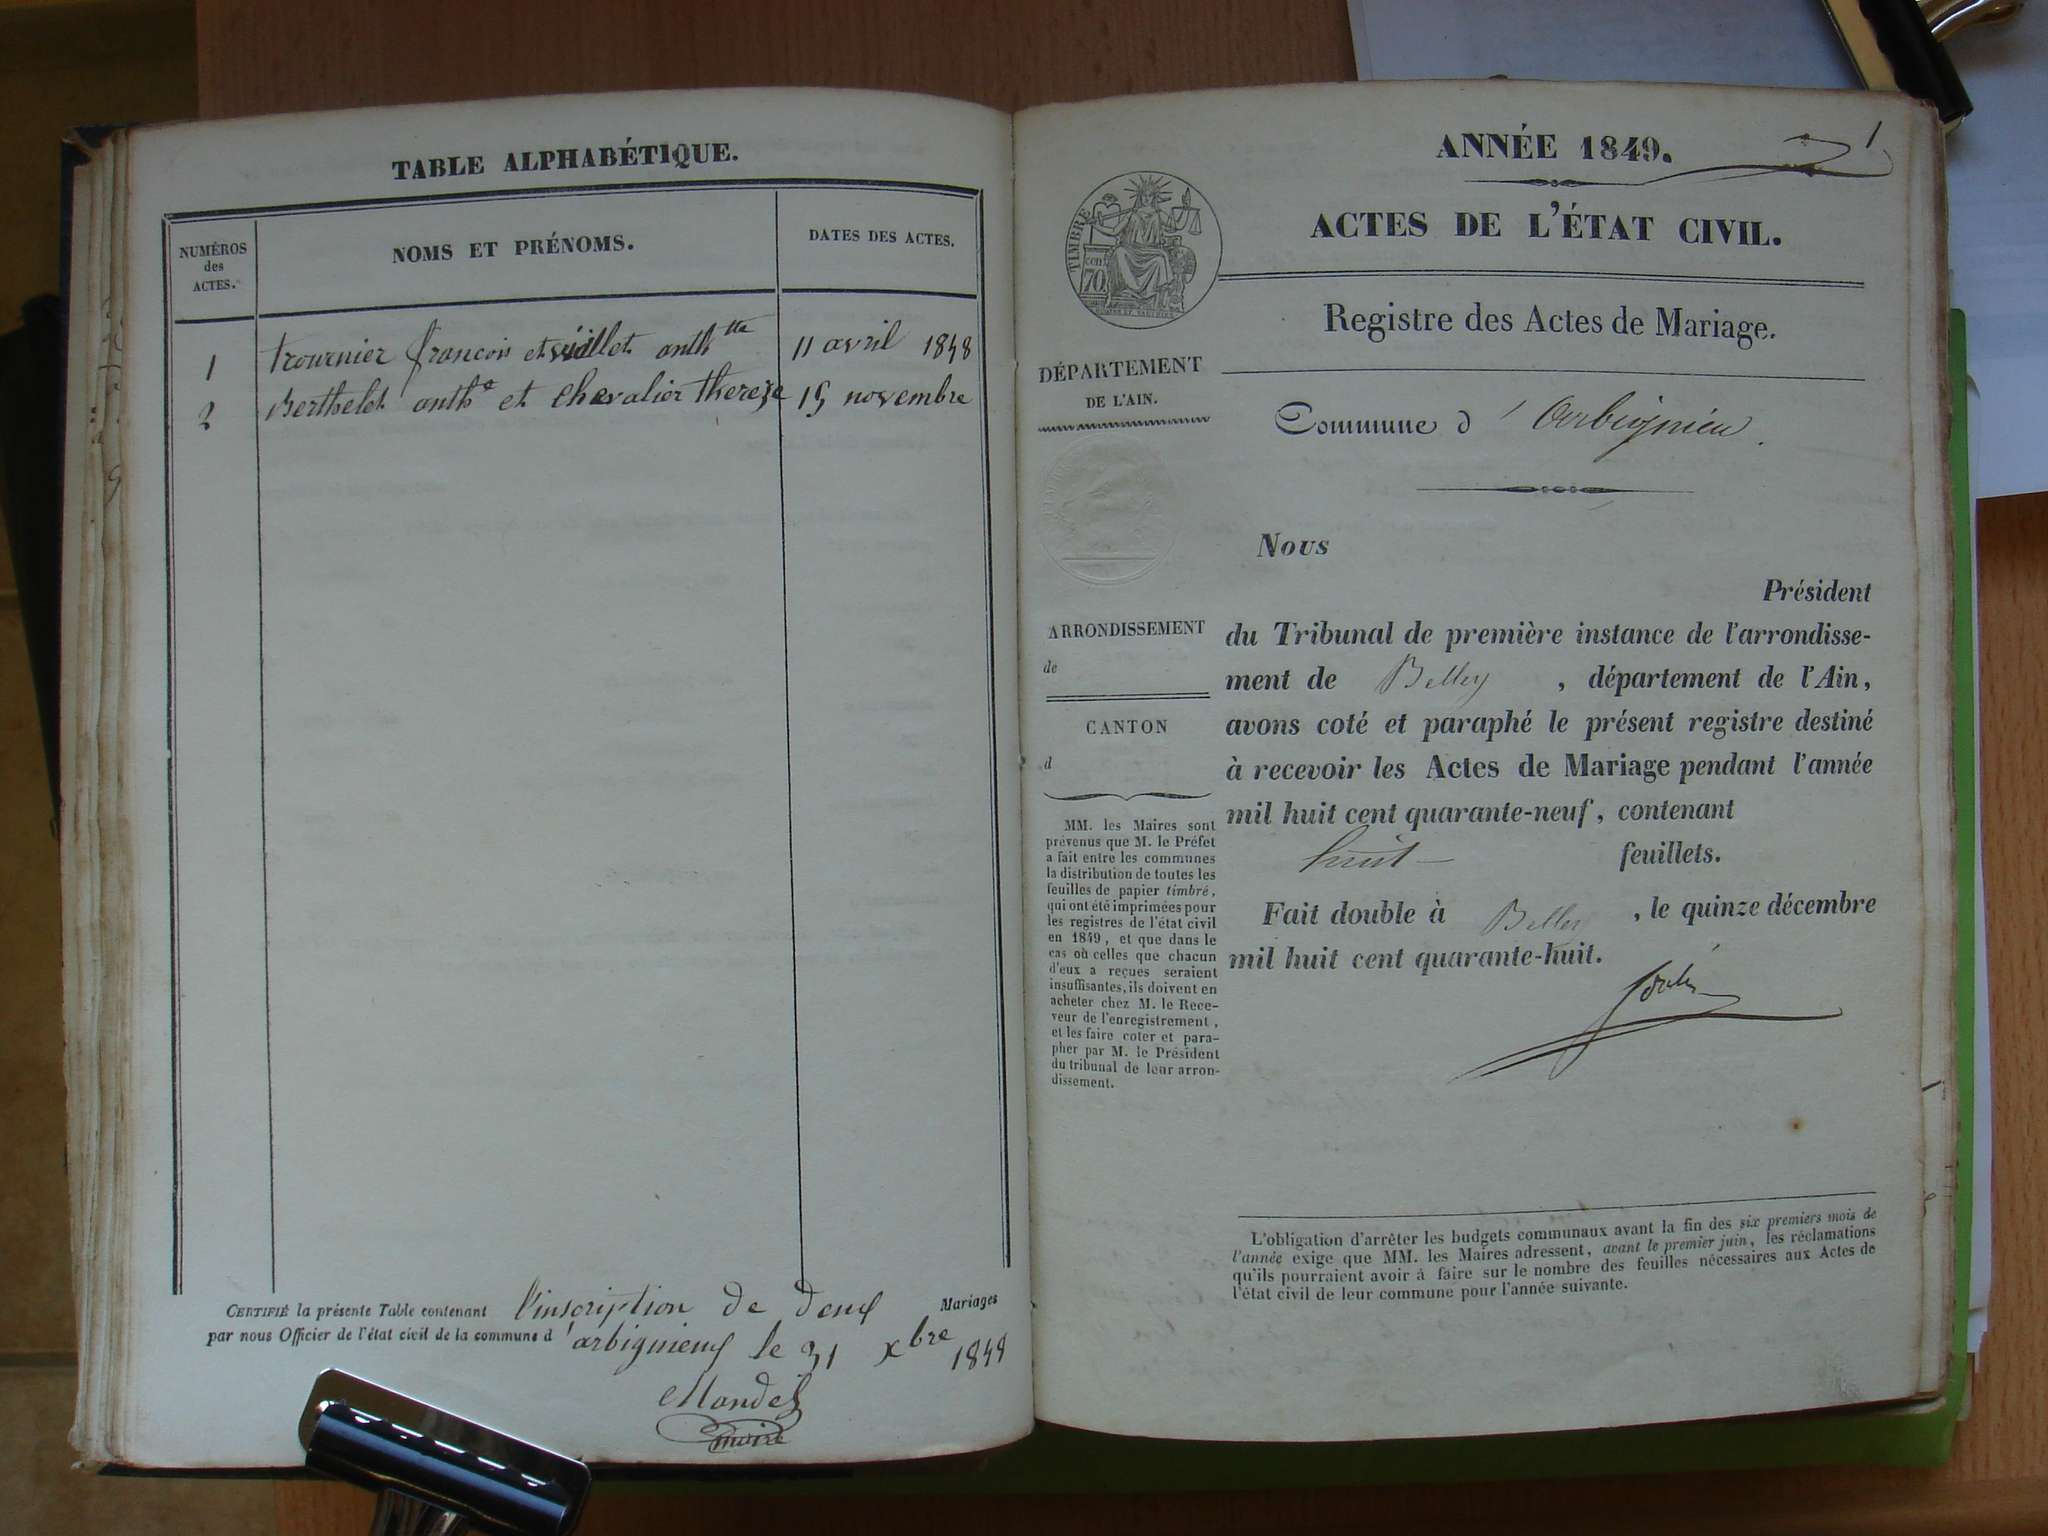 TABLE ALPHABÉTIQUE.
NUMÉROS
des
ACTES.
NOMS ET PRÉNOMS.
DATES DES ACTES.
1 trournier françois et vuillet anth.tte 11 avril 1848
2 Berthelet anth.e et chevalier therese 15 novembre
CERTIFIÉ la présente Table contenant l'inscription de deux Mariages
par nous Officier de l'état civil de la commune d'arbignieux le 31 xbre 1848
maire
1
ANNÉE 1849.
ACTES DE L'ÉTAT CIVIL.
TIMBRE
70
Registre des Actes de Mariage.
DÉPARTEMENT
DE L'AIN.
Commune d'Arbignieu.
Nous
Président
ARRONDISSEMENT
de
CANTON
d
du Tribunal de première instance de l'arrondisse-
ment de Belley, département de l'Ain,
avons coté et paraphé le présent registre destiné
à recevoir les Actes de Mariage pendant l'année
mil huit cent quarante-neuf, contenant
huit feuillets.
Fait double à Belley, le quinze décembre
mil huit cent quarante-huit.
MM. les Maires sont
prévenus que M. le Préfet
a fait entre les communes
la distribution de toutes les
feuilles de papier timbré,
qui ont été imprimées pour
les registres de l'état civil
en 1849, et que dans le
cas où celles que chacun
d'eux a reçues seraient
insuffisantes, ils doivent en
acheter chez M. le Rece-
veur de l'enregistrement,
et les faire coter et para-
pher par M. le Président
du tribunal de leur arron-
dissement.
L'obligation d'arrêter les budgets communaux avant la fin des six premiers mois de
l'année exige que MM. les Maires adressent, avant le premier juin, les réclamations
qu'ils pourraient avoir à faire sur le nombre des feuilles nécessaires aux Actes de
l'état civil de leur commune pour l'année suivante.